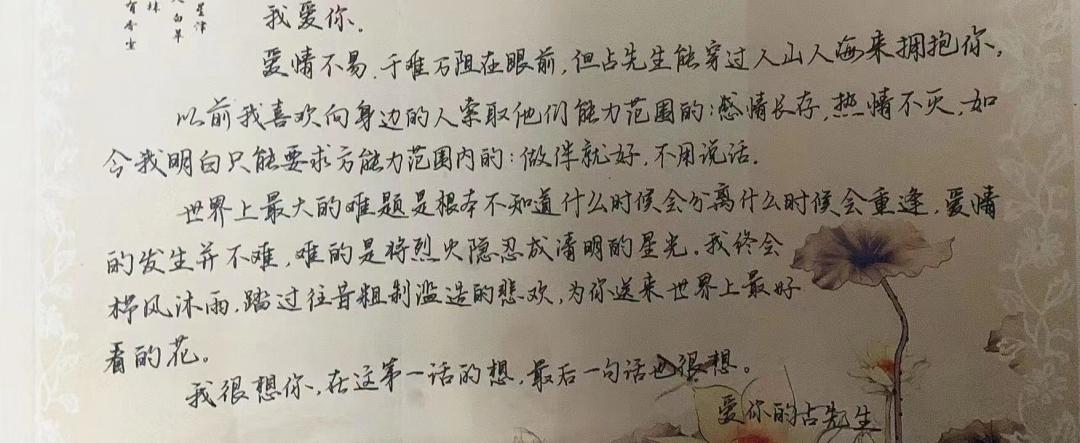 星津
白草
林
有香尘
我爱你。
爱情不易，千难万阻在眼前，但占先生能穿过人山人海来拥抱你。
以前我喜欢向身边的人索取他们能力范围的：感情长存，热情不灭，如
今我明白只能要求方能力范围内的：做伴就好，不用说话。
世界上最大的难题是根本不知道什么时候会分离什么时候会重逢，爱情
的发生并不难，难的是将烈火隐忍成清明的星光。我终会
栉风沐雨，踏过往昔粗制滥造的悲欢，为你送来世界上最好
看的花。
我很想你，在这第一话的想，最后一句话也很想。
爱你的占先生